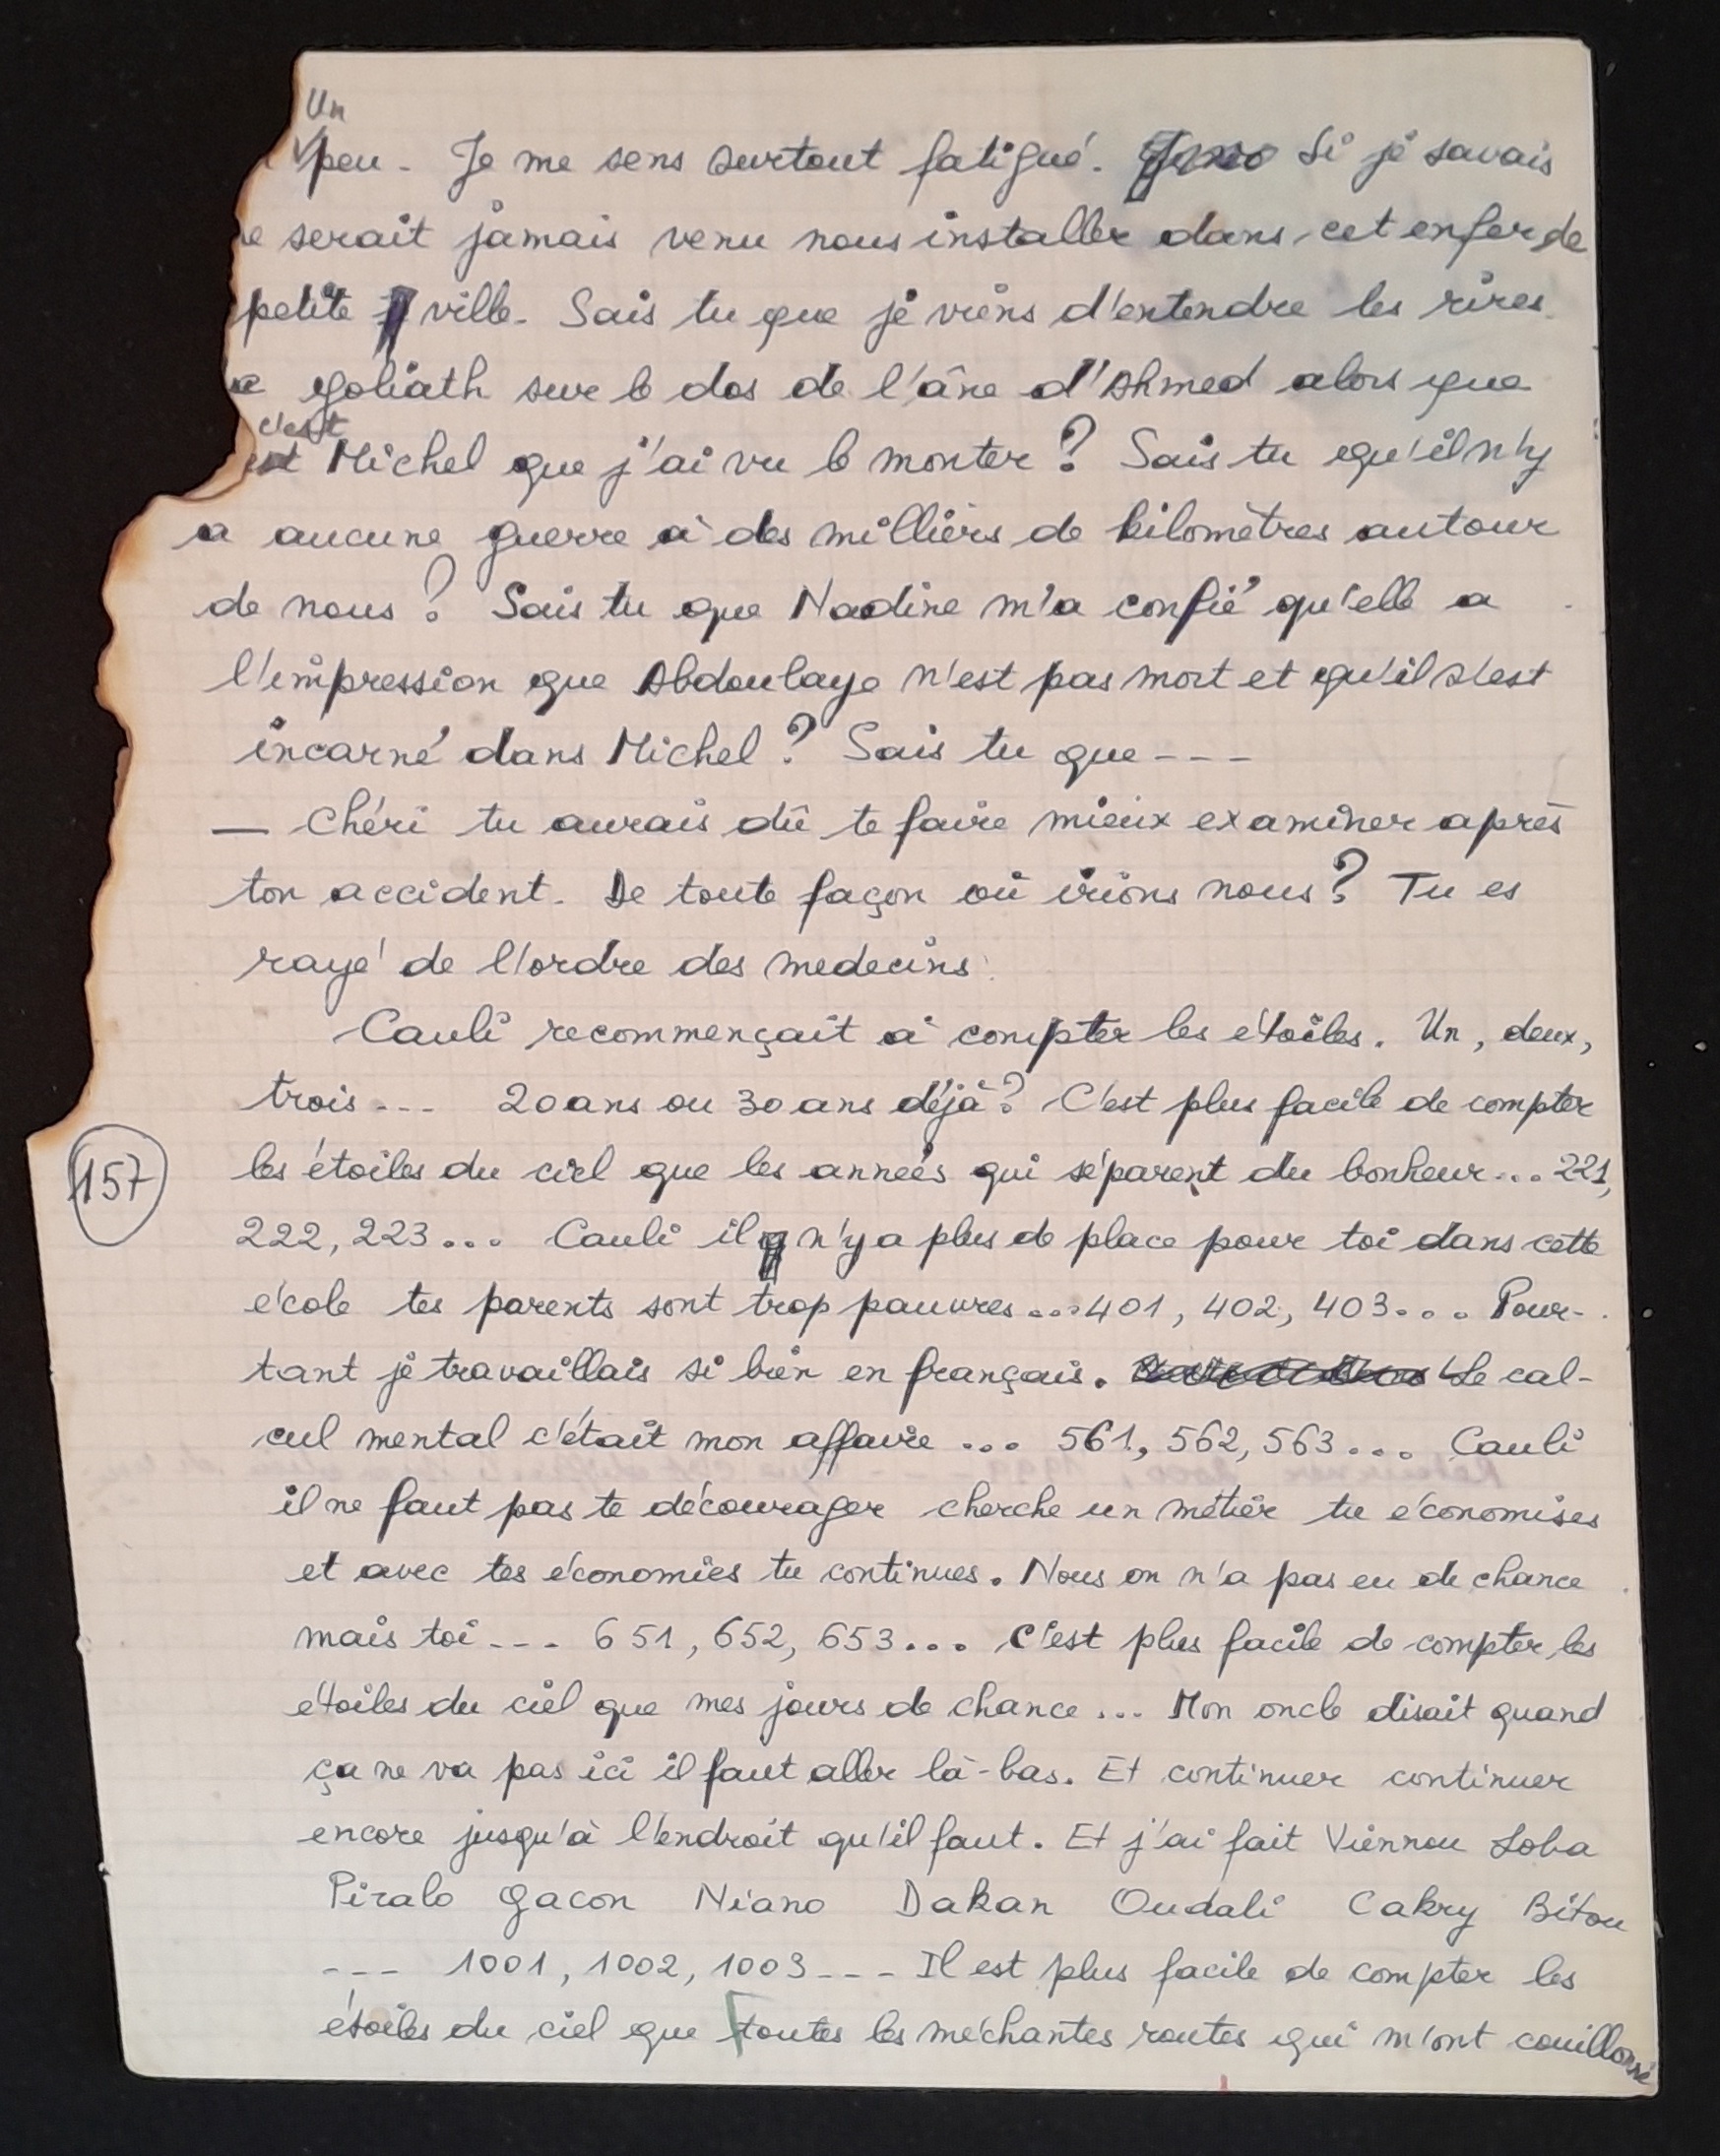 Un
peu - Je me sens surtout fatigué. Si je savais
serait jamais venu nous installer dans cet enfer de
petite ville - Sais tu que je viens d'entendre les rires
goliath sur le dos de l'âne d'Ahmed alors que
c'est
Michel que j'ai vu le monter ? Sais tu qu'il n'y
a aucune guerre à des milliers de kilomètres autour
de nous ? Sais tu que Nadine m'a confié qu'elle a
l'impression que Abdoulaye n'est pas mort et qu'il s'est
incarné dans Michel ? Sais tu que - - -
— Chéri tu aurais dû te faire mieux examiner après
ton accident. De toute façon où irions nous ? Tu es
rayé de l'ordre des medecins.
Cauli recommençait à compter les étoiles. Un, deux,
trois - - - 20 ans ou 30 ans déjà ? C'est plus facile de compter
les étoiles du ciel que les années qui séparent du bonheur... 221,
157
222, 223... Cauli il n'y a plus de place pour toi dans cette
école tes parents sont trop pauvres... 401, 402, 403... Pour-
tant je travaillais si bien en français. Le cal-
cul mental c'était mon affaire ... 561, 562, 563... Cauli
il ne faut pas te décourager cherche un métier tu économises
et avec tes économies tu continues. Nous on n'a pas eu de chance
mais toi - - - 651, 652, 653... C'est plus facile de compter les
étoiles du ciel que mes jours de chance ... Mon oncle disait quand
ça ne va pas ici il faut aller là-bas. Et continuer continuer
encore jusqu'à l'endroit qu'il faut. Et j'ai fait Viennou Loba
Piralo Gacon Niano Dakan Oudali Cakry Bitou
- - - 1001, 1002, 1003 - - - Il est plus facile de compter les
étoiles du ciel que toutes les méchantes routes qui m'ont couillonné